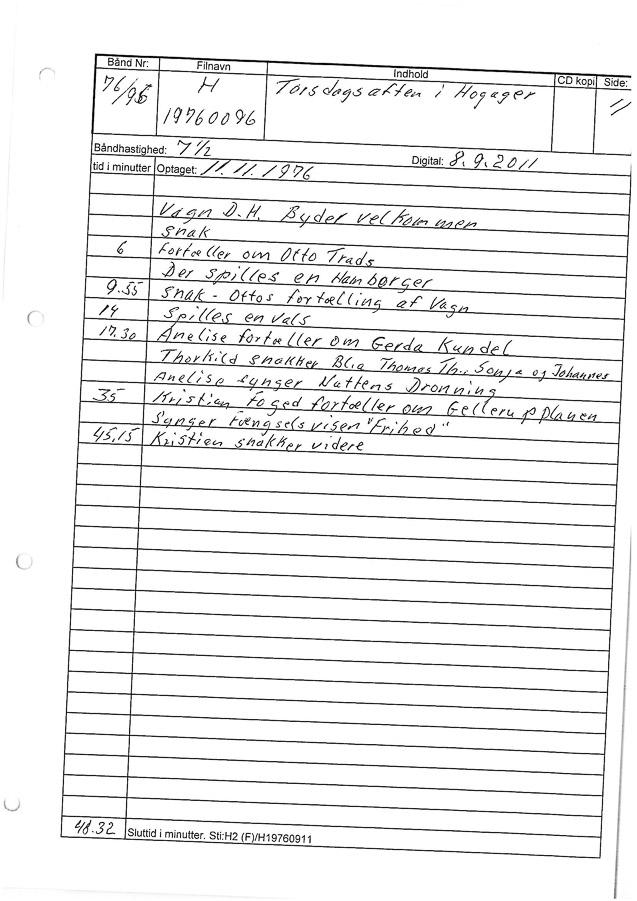 Bånd Nr: Filnavn Indhold CD kopi Side:
76/96 H Torsdagsaften i Hogager 11
19760096
Båndhastighed: 7 1/2 Digital: 8.9.2011
tid i minutter Optaget: 11.11.1976
Vagn D.H. Byder velkommen
snak
6 fortæller om Otto Trads
Der spilles en Hamborger
9.55 snak - Ottos fortælling af Vagn
14 Spilles en vals
17.30 Anelise fortæller om Gerda Kundel
Thorkild snakker Bla Thomas Th., Sonja og Johannes
Anelise synger Nattens Dronning
35 Kristian Foged fortæller om Gellerupplanen
Synger Fængselsvisen "Frihed"
45.15 Kristian snakker videre
48.32 Sluttid i minutter. Sti:H2 (F)/H19760911